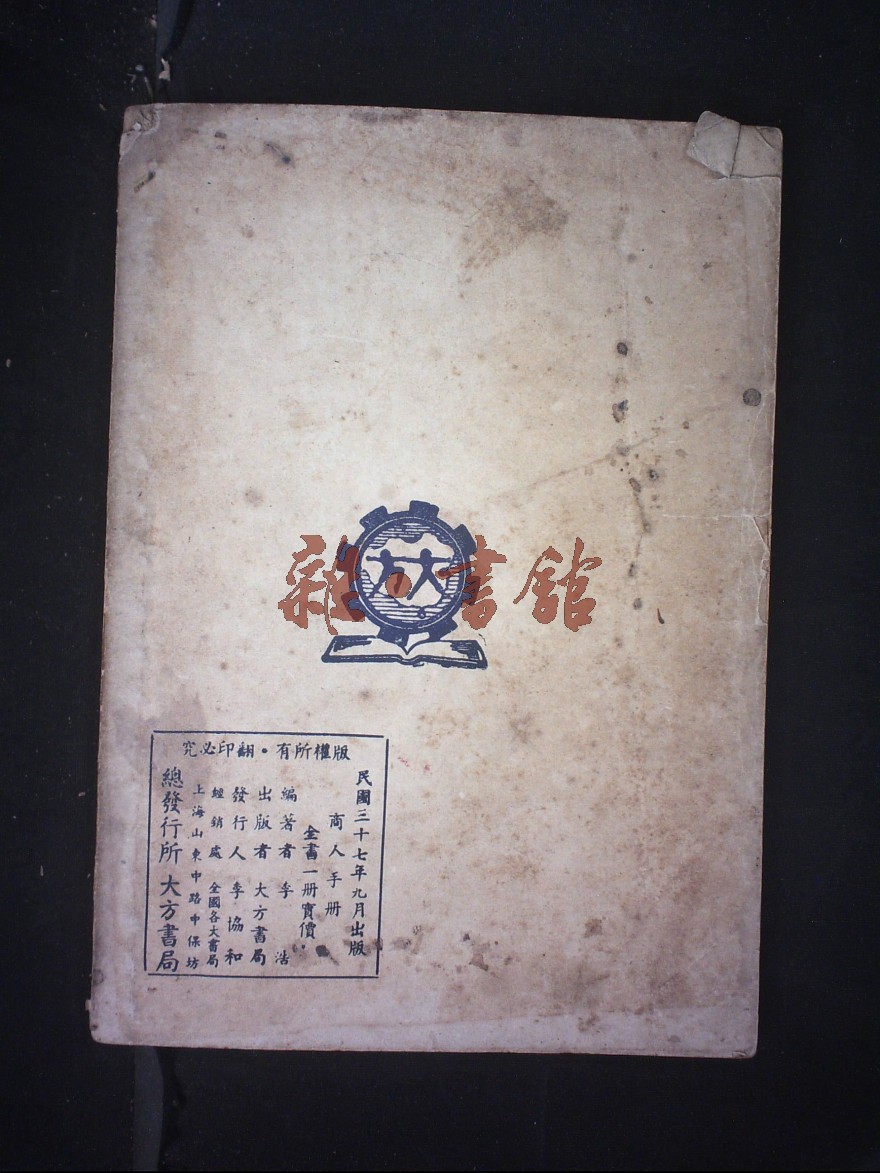 雜·書館
大方
版權所有·翻印必究
民國三十七年九月出版
商人手册
全書一册實價
編著者 李浩
出版者 大方書局
發行人 李協和
經銷處 全國各大書局
上海山東中路中保坊
總發行所 大方書局